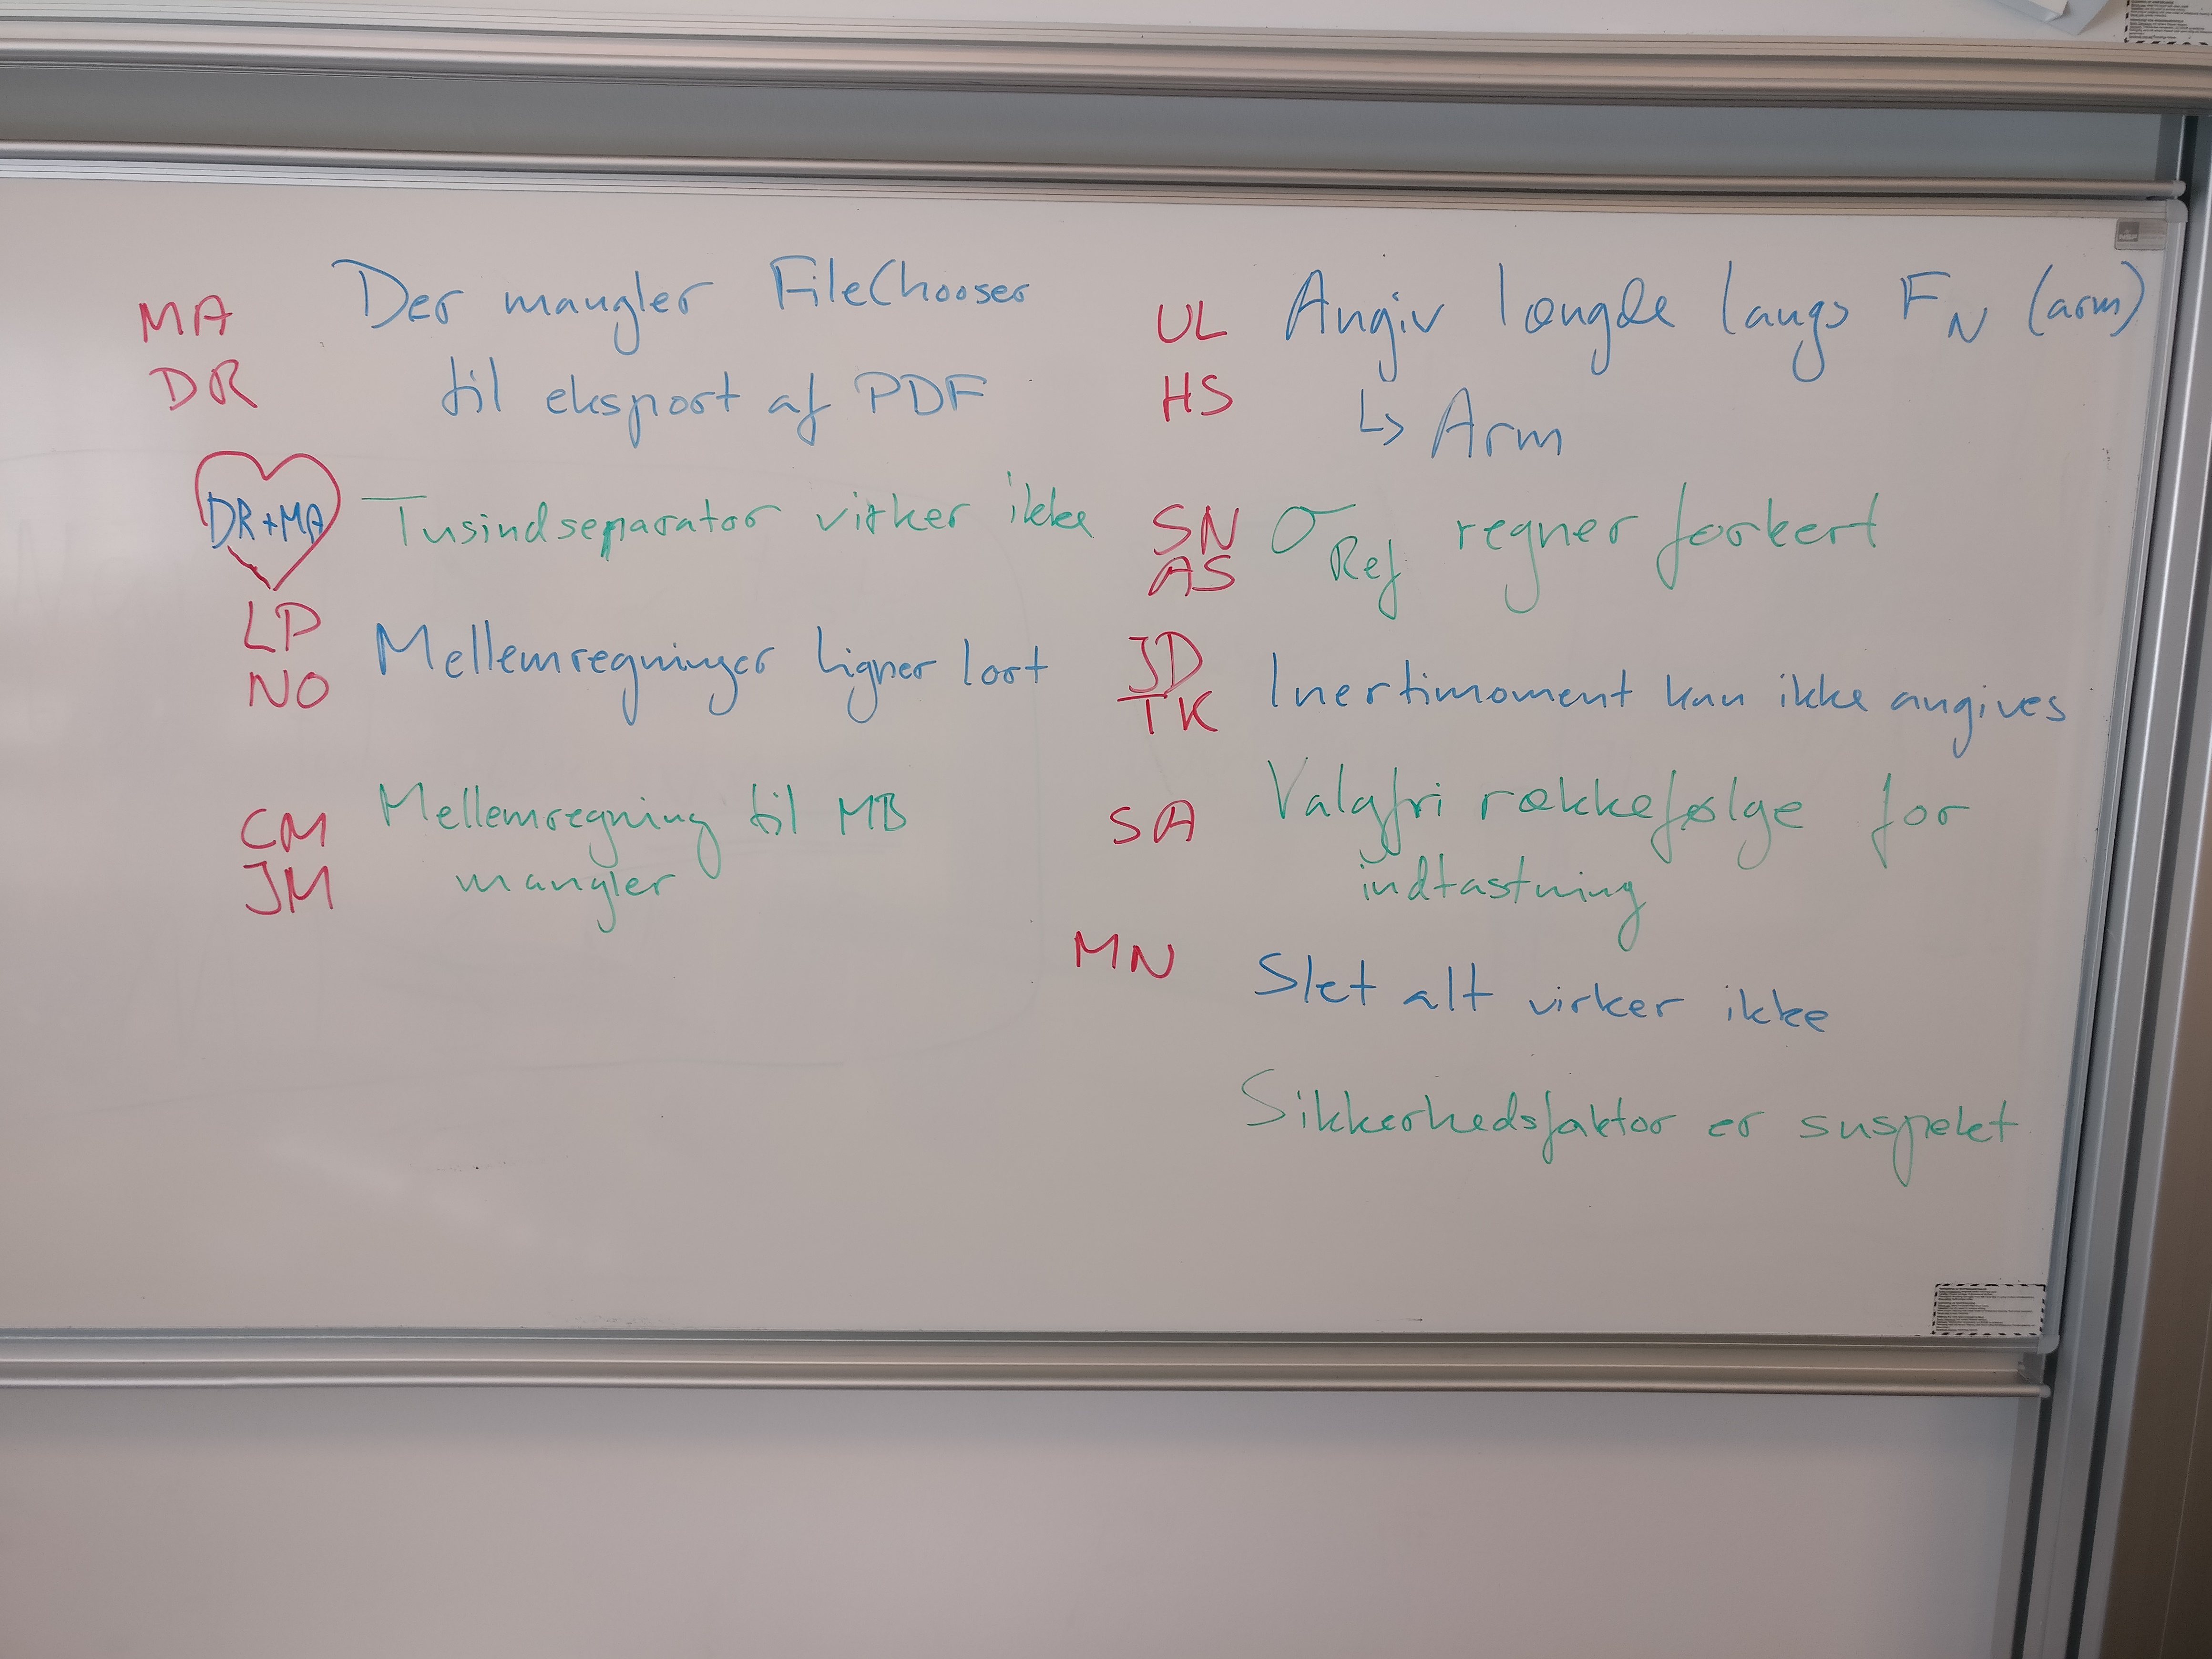 MA Der mangler FileChooser
DR til eksport af PDF
DR+MA Tusindseparator virker ikke
LP
NO Mellemregninger ligner lort
CM Mellemregning til MB
JM mangler
UL Angiv længde langs F_N (arm)
HS ↳ Arm
SN σ_Ref regner forkert
AS
JD
TK Inertimoment kan ikke angives
SA Valgfri rækkefølge for
indtastning
MN Slet alt virker ikke
Sikkerhedsfaktor er suspekt